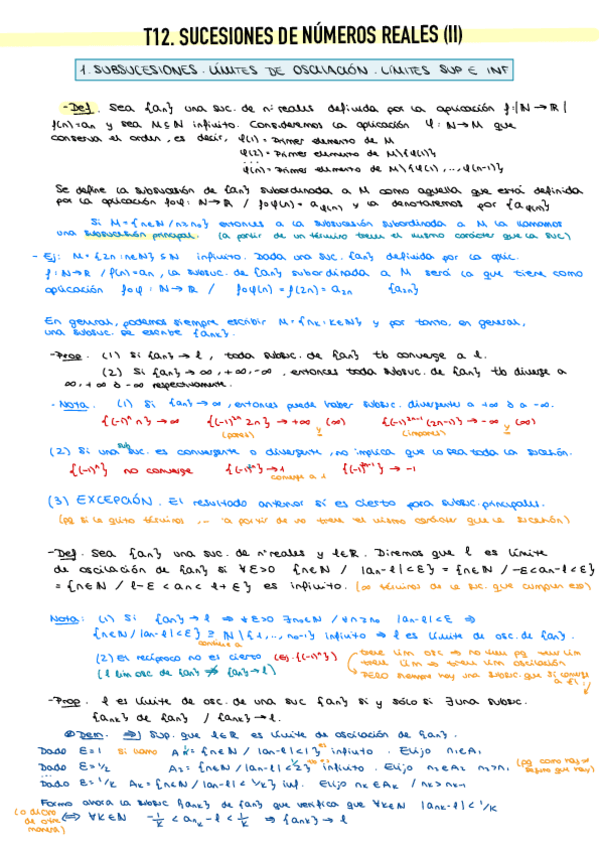 T12. SUCESIONES DE NÚMEROS REALES (II)
1. SUBSUCESIONES. LÍMITES DE OSCILACIÓN. LÍMITES SUP E INF
- Def. Sea {an} una suc. de nº reales definida por la aplicación f: ℕ → ℝ /
f(n)=an y sea M⊆ℕ infinito. Consideremos la aplicación φ: ℕ→M que
conserva el orden, es decir, φ(1) = Primer elemento de M
φ(2) = Primer elemento de M\{φ(1)}
...
φ(n) = Primer elemento de M\{φ(1), ..., φ(n-1)}
Se define la subsucesión de {an} subordinada a M como aquella que está definida
por la aplicación foφ: ℕ→ℝ / foφ(n) = aφ(n) y la denotaremos por {aφ(n)}
Si M = {n∈ℕ / n≥n0} entonces a la subsucesión subordinada a M la llamamos
una subsucesión principal. (a partir de un término tienen el mismo carácter que la suc)
- Ej: M = {2n : n∈ℕ} ⊆ ℕ infinito. Dada una suc. {an} definida por la aplic.
f: ℕ→ℝ / f(n) = an, la subsuc. de {an} subordinada a M será la que tiene como
aplicación foφ: ℕ→ℝ / foφ(n) = f(2n) = a2n {a2n}
En general, podemos siempre escribir M = {nk : k∈ℕ} y por tanto, en general,
una subsuc. se escribe {ank}.
- Prop. (1) Si {an} → l, toda subsuc. de {an} tb converge a l.
(2) Si {an} → ∞, +∞, -∞, entonces toda subsuc. de {an} tb diverge a
∞, +∞ ó -∞ respectivamente.
- Nota. (1) Si {an} → ∞, entonces puede haber subsuc. divergente a +∞ ó a -∞.
{(-1)ⁿ n} → ∞ {(-1)²ⁿ 2n} → +∞ (∞) y {(-1)²ⁿ⁻¹ (2n-1)} → -∞ y (∞)
(pares) (impares)
(2) Si una subsuc. es convergente o divergente, no implica que lo sea toda la sucesión.
{(-1)ⁿ} no converge {(-1)²ⁿ} → 1 {(-1)²ⁿ⁻¹} → -1
converge a 1
(3) EXCEPCIÓN. El resultado anterior sí es cierto para subsuc. principales.
(pq si le quito términos, a partir de no tiene el mismo carácter que la sucesión)
- Def. Sea {an} una suc. de nº reales y l∈ℝ. Diremos que l es límite
de oscilación de {an} si ∀ε>0 {n∈ℕ / |an-l|<ε} = {n∈ℕ / -ε<an-l<ε}
= {n∈ℕ / l-ε < an < l+ε} es infinito. (∞ términos de la suc. que cumplen eso)
Nota: (1) Si {an} → l ⇒ ∀ε>0 ∃n0∈ℕ / ∀n≥n0 |an-l|<ε ⇒
{n∈ℕ / |an-l|<ε} ⊇ ℕ\{1, ..., n0-1} infinito ⇒ l es límite de osc. de {an}.
contiene a
(2) El recíproco no es cierto (Ej. {(-1)ⁿ})
(l lim osc de {an} ⇏ {an}→l)
tiene lím osc ⇏ no tiene pq tener lím
tiene lím ⇒ tiene lím oscilación
PERO siempre hay una subsuc. que sí converge a él
- Prop. l es límite de osc. de una suc {an} si y sólo si ∃ una subsuc.
{ank} de {an} / {ank} → l.
Dem. ⇒) Sup. que l∈ℝ es límite de oscilación de {an}.
Dado ε=1 si llamo A1 = {n∈ℕ / |an-l|<1} es infinito. Elijo n1∈A1
Dado ε=1/2 A2 = {n∈ℕ / |an-l|<1/2} infinito. Elijo n2∈A2 n2>n1 (pq como hay ∞ seguro que hay)
...
Dado ε=1/k Ak = {n∈ℕ / |an-l|<1/k} inf. Elijo nk∈Ak / nk>nk-1
Formo ahora la subsuc {ank} de {an} que verifica que ∀k∈ℕ |ank-l| < 1/k
(o dicho de otra manera) ⇔ ∀k∈ℕ -1/k < ank - l < 1/k ⇒ {ank} → l